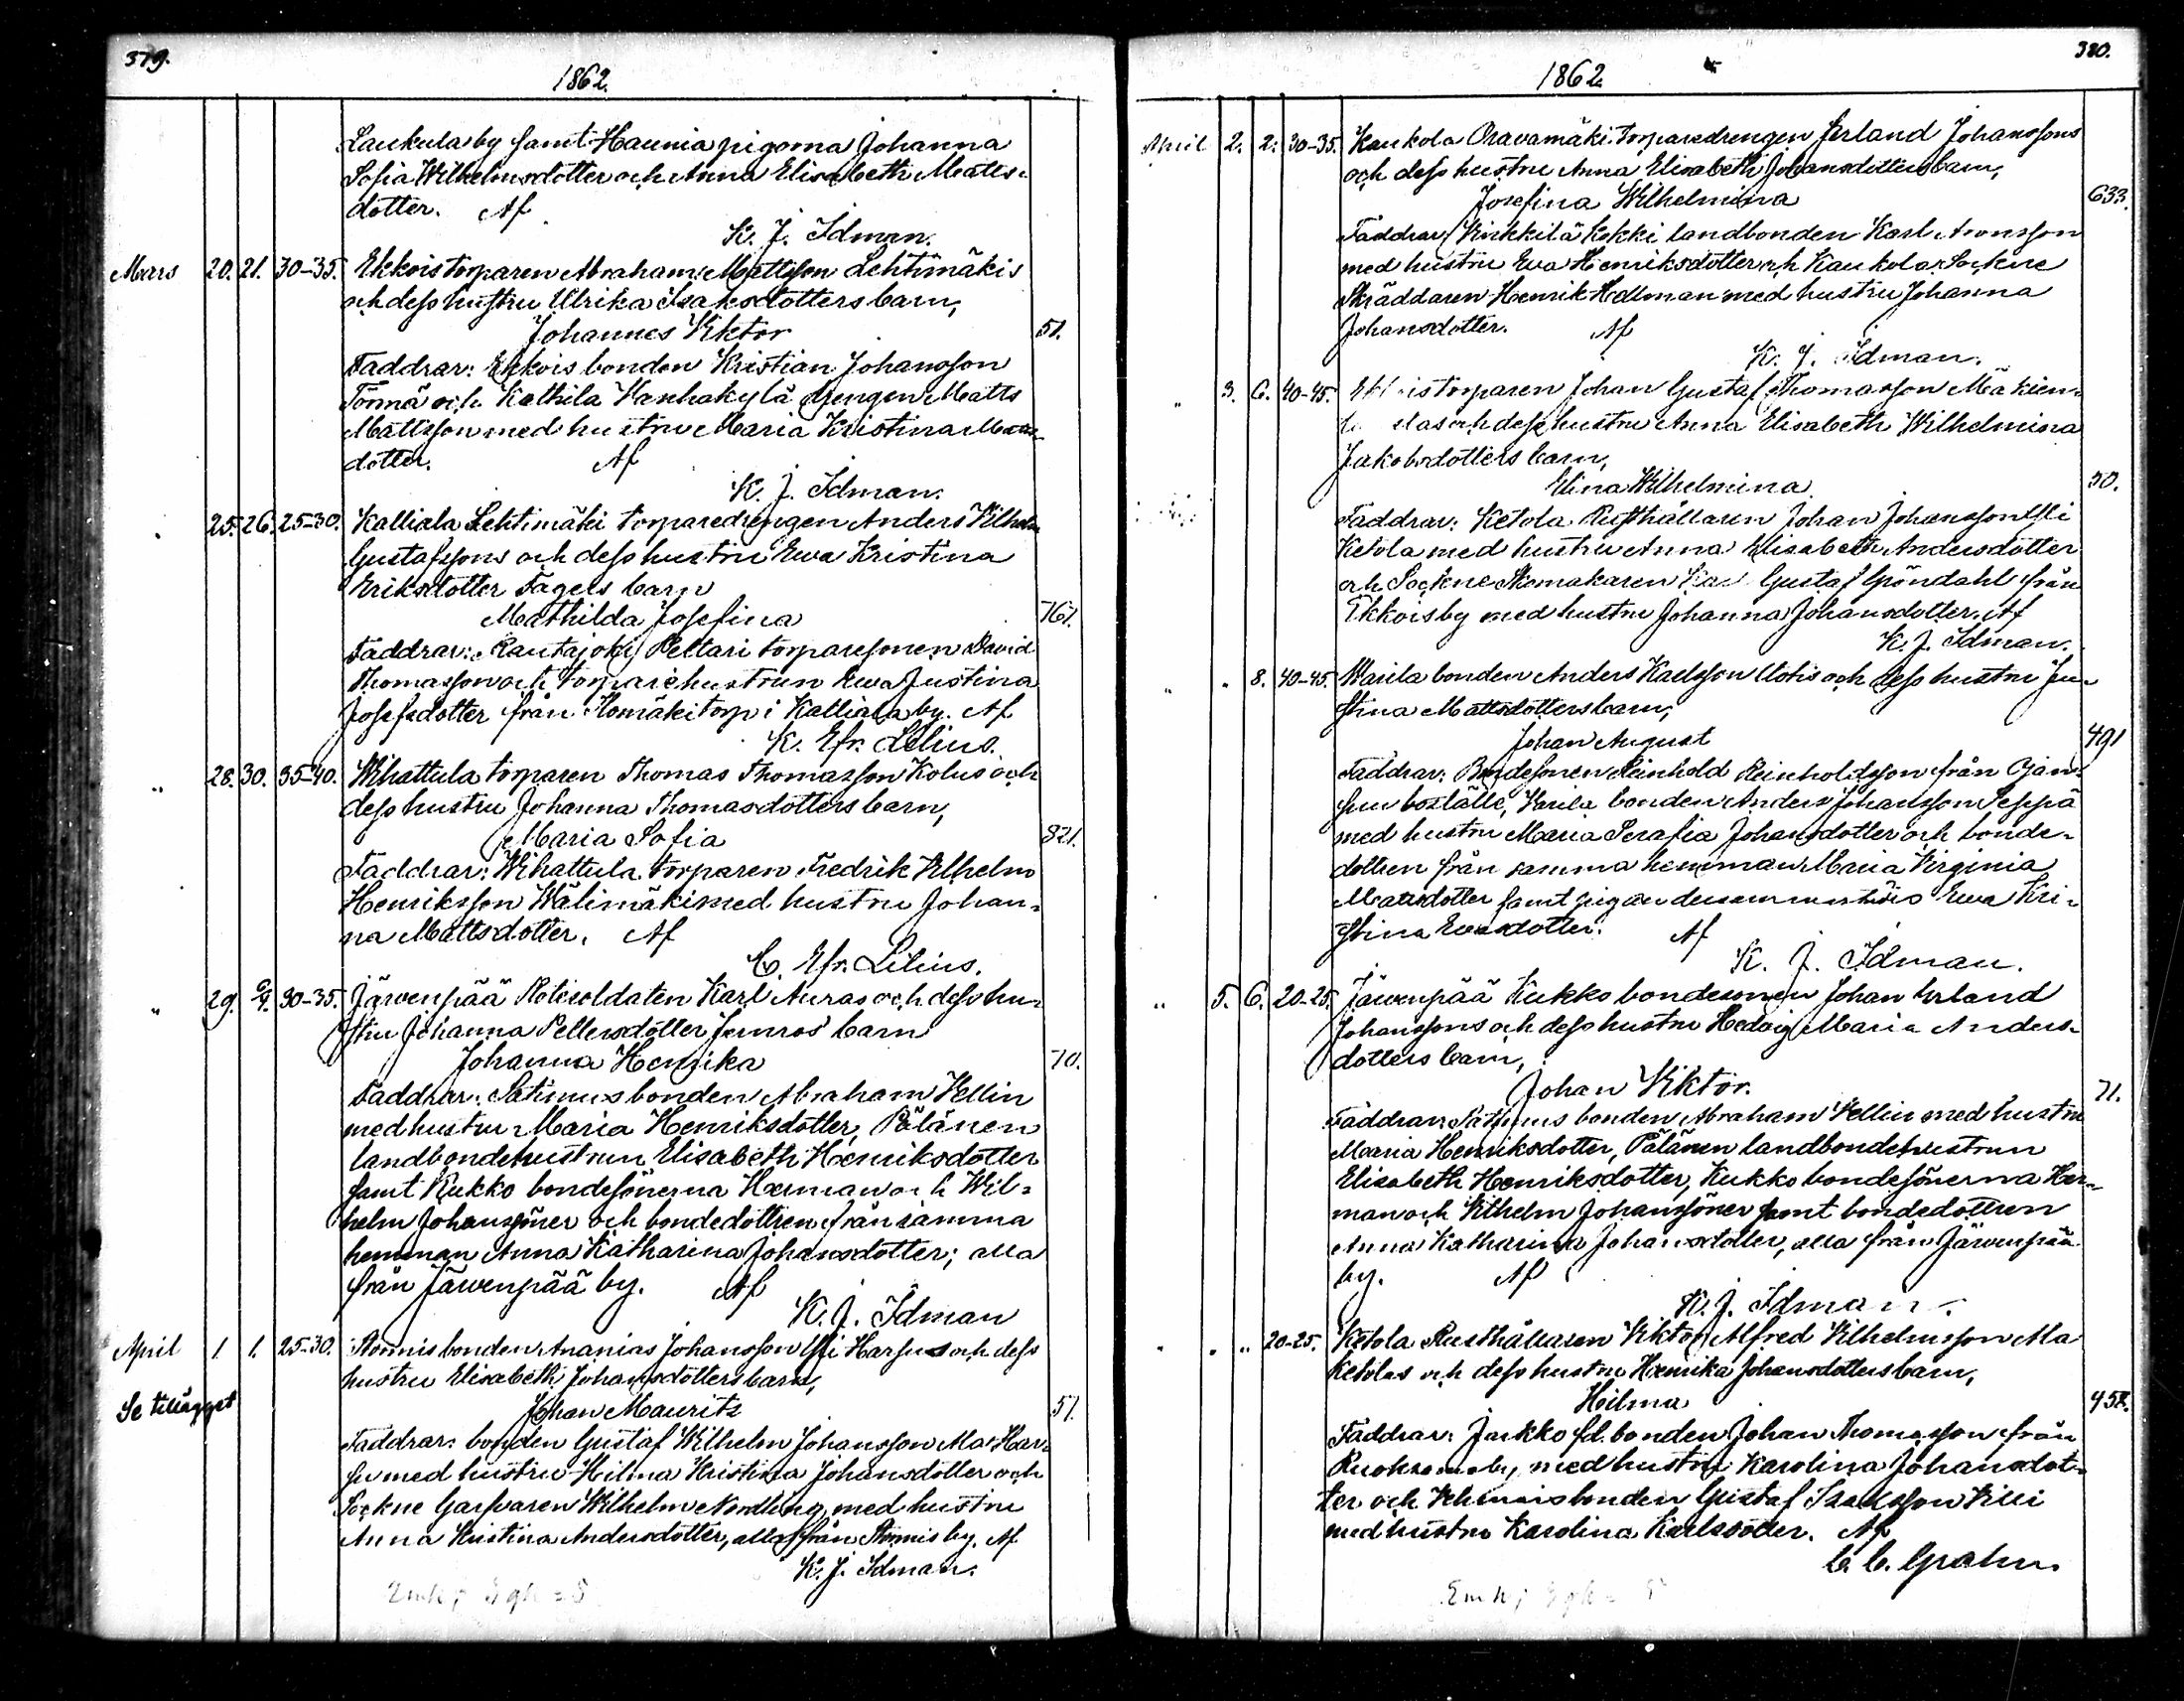 379.
1862.
Laukula by samt Haunia pigorna Johanna
Sofia Wilhelmsdotter och Anna Elisabeth Matts-
dotter. Af
K. J. Idman.
Mars 20. 21. 30-35. Ekkois torparen Abraham Mattsson Lehtimäkis
och dess hustru Ulrika Isaksdotters barn,
Johannes Viktor 51.
Faddrar: Ekkois bonden Kristian Johansson
Törmä och Kathila Wanhakylä drengen Matts
Mattsson med hustru Maria Kristina Matts-
dotter. Af
K. J. Idman.
" 25. 26. 25-30. Kalliala Lehtimäki torparedrengen Anders Vilhelm
Gustafssons och dess hustru Ewa Kristina
Eriksdotter Fagers barn
Mathilda Josefina 761.
Faddrar: Rautajoki Peltari torparesonen David
Thomasson och torparehustrun Ewa Justina
Josefsdotter från Homäki torp i Kalliala by. Af
K. Efr. Lilius.
" 28. 30. 35-40. Wihattula torparen Thomas Thomasson Kolus och
dess hustru Johanna Thomasdotters barn,
Maria Sofia 821.
Faddrar: Wihattula torparen Fredrik Vilhelm
Henriksson Wälimäki med hustru Johan-
na Mattsdotter. Af
C. Efr. Lilius.
" 29. 6/4. 30-35. Järvenpää Rotesoldaten Karl Auras och dess hu-
stru Johanna Pettersdotter Jemros barn
Johanna Henrika 70.
Faddrar: Satimus bonden Abraham Vellin
med hustru Maria Henriksdotter, Pälänen
landbondehustrun Elisabeth Henriksdotter
samt Kukko bondesönerna Herman och Wil-
helm Johanssöner och bondedottren från samma
hemman Anna Katharina Johansdotter; alla
från Järvenpää by. Af
K. J. Idman
April 1. 1. 25-30. Stormis bonden Ananias Johansson Yli Harjus och dess
hustru Elisabeth Johansdotters barn,
Se tillägget
Johan Mauritz 51.
Faddrar: bonden Gustaf Wilhelm Johansson Ala Har-
ju med hustru Hilma Kristina Johansdotter och
Sockne Garfvaren Wilhelm Nordling med hustru
Anna Kristina Andersdotter, alla från Stormis by. Af
K. J. Idman.
380.
1862.
April 2. 2. 30-35. Kaukola Oravamäki torparedrengen Erland Johanssons
och dess hustru Anna Elisabeth Johansdotters barn,
Josefina Wilhelmina 633.
Faddrar: Kirkkilä Kokki landbonden Karl Aronsson
med hustru Ewa Henriksdotter och Kaukola Sockne
Skräddaren Henrik Hedman med hustru Johanna
Johansdotter. Af
K. J. Idman.
" 3. 6. 40-45. torparen Johan Gustaf Thomasson Mäkien-
och dess hustru Anna Elisabeth Wilhelmina
Jakobsdotters barn,
Elina Wilhelmina. 50.
Faddrar: Ketola Rusthållaren Johan Johansson Yli
Ketola med hustru Anna Elisabeth Andersdotter
och Sockne Skomakaren Karl Gustaf Gröndahl från
Ekkois by med hustru Johanna Johansdotter. Af
K. J. Idman.
" " 8. 40-45. Warila bonden Anders Karlsson Uotis och dess hustru Ju-
stina Mattsdotters barn,
Johan August 491
Faddrar: Bondesonen Reinhold Reinholdsson från Ojan-
suu boställe, Varila bonden Anders Johansson Seppä
med hustru Maria Serafia Johansdotter och bonde-
dottren från samma hemman Maria Virginia
Mattsdotter samt pigan dersammastädes Ewa Kri-
stina Ewasdotter. Af
K. J. Idman.
" 5. 6. 20-25. Järvenpää Kukko bondesonen Johan Erland
Johanssons och dess hustru Hedvig Maria Anders-
dotters barn,
Johan Viktor. 71.
Faddrar: Satimus bonden Abraham Vellin med hustru
Maria Henriksdotter, Pälänen landbondehustrun
Elisabeth Henriksdotter, Kukko bondesönerna Her-
man och Vilhelm Johanssöner samt bondedottren
Anna Katharina Johansdotter, alla från Järvenpää
by. Af
K. J. Idman.
" " " 20-25. Ketola Rusthållaren Viktor Alfred Vilhelmsson Ala
Ketolas och dess hustru Henrika Johansdotters barn,
Hilma 452.
Faddrar: Jaakko fd. bonden Johan Thomasson från
by med hustru Karolina Johansdot-
ter och bonden Gustaf Isaksson Villi
med hustru Karolina Karlsdotter. Af
C. C. Grahn.